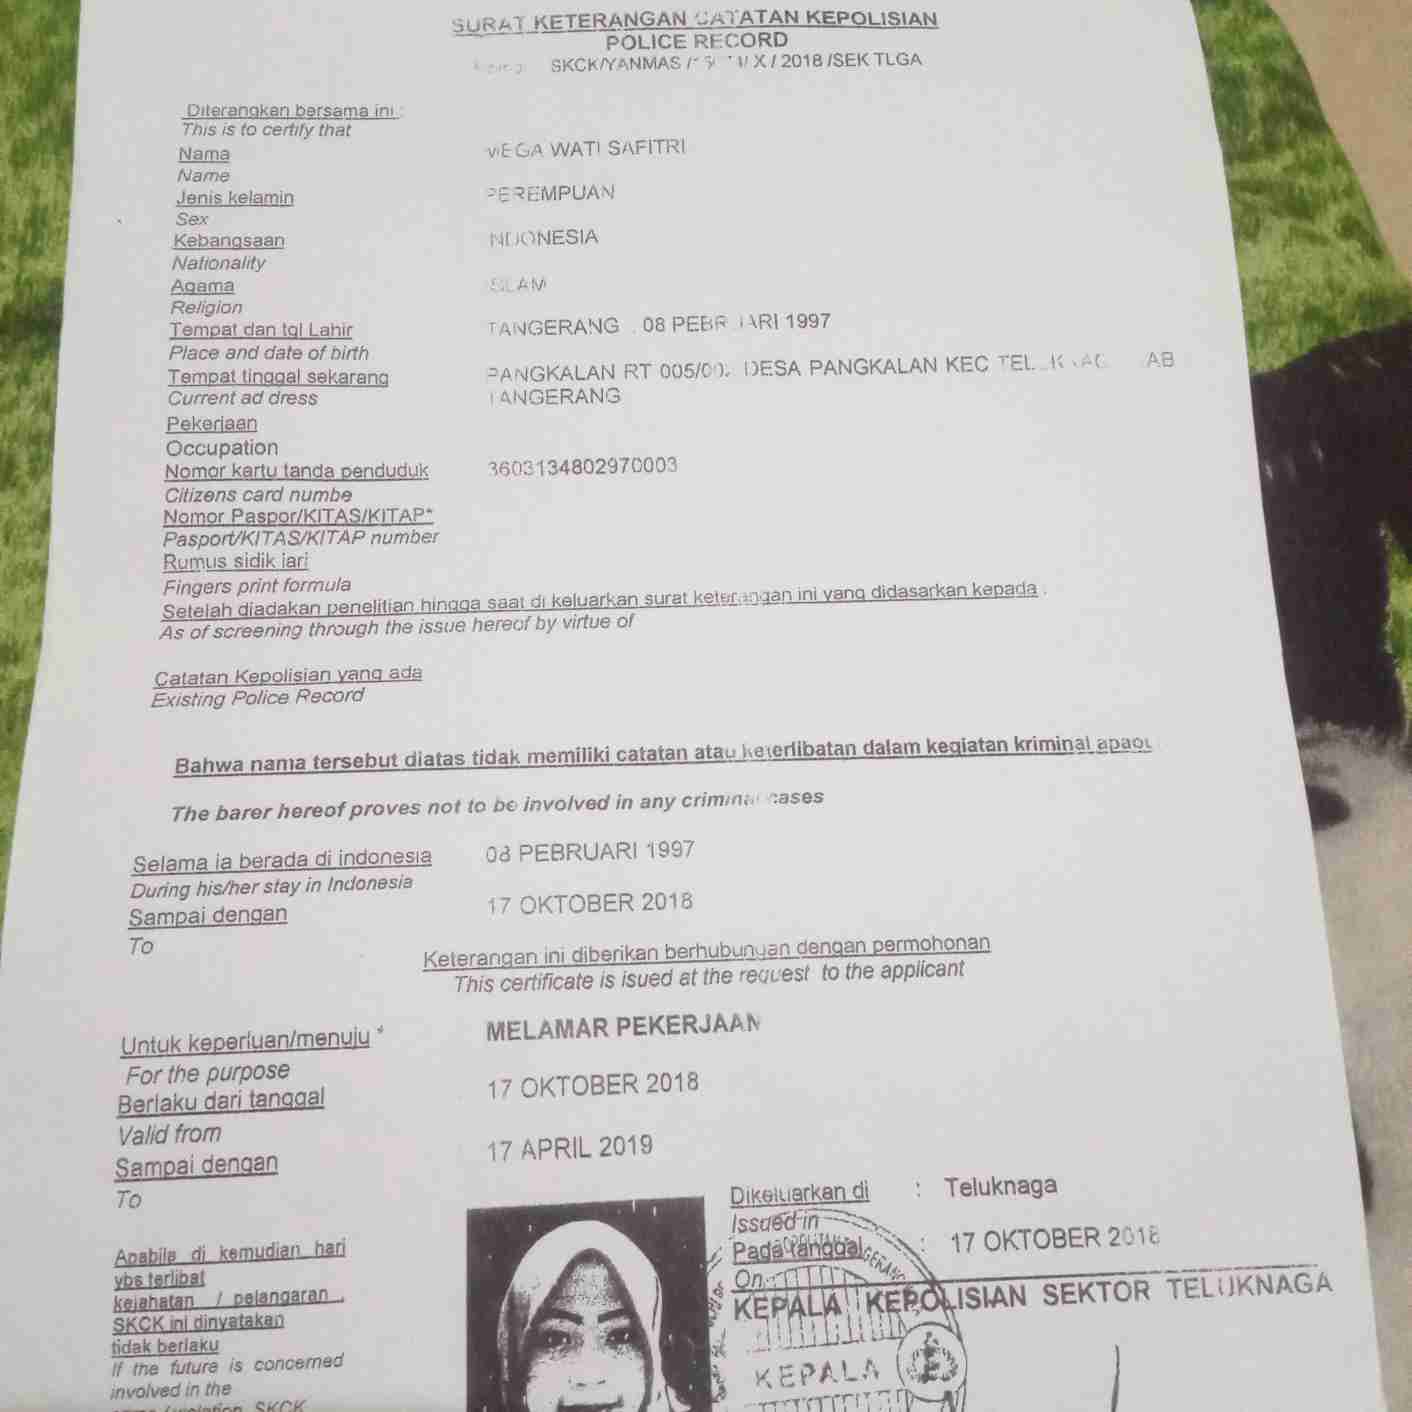 SURAT KETERANGAN CATATAN KEPOLISIAN
POLICE RECORD
SKCK/YANMAS / X / 2018 /SEK TLGA
Diterangkan bersama ini :
This is to certify that
Nama MEGA WATI SAFITRI
Name
Jenis kelamin PEREMPUAN
Sex
Kebangsaan INDONESIA
Nationality
Agama ISLAM
Religion
Tempat dan tgl Lahir TANGERANG , 08 PEBRUARI 1997
Place and date of birth
Tempat tinggal sekarang PANGKALAN RT 005/ DESA PANGKALAN KEC
Current ad dress TANGERANG
Pekerjaan
Occupation
Nomor kartu tanda penduduk 3603134802970003
Citizens card numbe
Nomor Paspor/KITAS/KITAP*
Pasport/KITAS/KITAP number
Rumus sidik jari
Fingers print formula
Setelah diadakan penelitian hingga saat di keluarkan surat keterangan ini yang didasarkan kepada :
As of screening through the issue hereof by virtue of
Catatan Kepolisian yang ada
Existing Police Record
Bahwa nama tersebut diatas tidak memiliki catatan atau keterlibatan dalam kegiatan kriminal
The barer hereof proves not to be involved in any criminal cases
Selama ia berada di indonesia 08 PEBRUARI 1997
During his/her stay in Indonesia
Sampai dengan 17 OKTOBER 2018
To
Keterangan ini diberikan berhubungan dengan permohonan
This certificate is isued at the request to the applicant
Untuk keperluan/menuju * MELAMAR PEKERJAAN
For the purpose
Berlaku dari tanggal 17 OKTOBER 2018
Valid from
Sampai dengan 17 APRIL 2019
To
Dikeluarkan di : Teluknaga
Issued in
Pada tanggal : 17 OKTOBER 2018
On
KEPALA KEPOLISIAN SEKTOR TELUKNAGA
KEPALA
Apabila di kemudian hari
ybs terlibat
kejahatan / pelangaran ,
SKCK ini dinyatakan
tidak berlaku
If the future is concerned
involved in the
SKCK